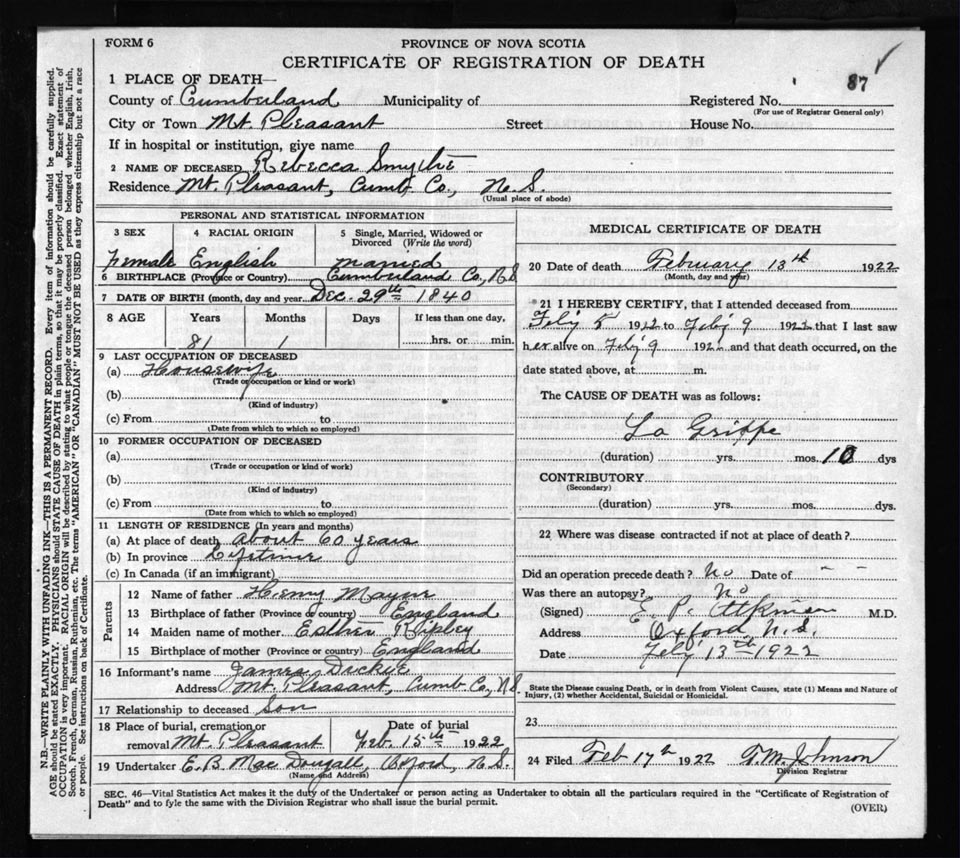 FORM 6
PROVINCE OF NOVA SCOTIA
CERTIFICATE OF REGISTRATION OF DEATH
87
1 PLACE OF DEATH—
County of Cumberland Municipality of
Registered No.
(For use of Registrar General only)
City or Town Mt. Pleasant Street House No.
If in hospital or institution, give name
2 NAME OF DECEASED Rebecca Smythe
Residence Mt. Pleasant, Cumb. Co., N.S.
(Usual place of abode)
PERSONAL AND STATISTICAL INFORMATION
3 SEX 4 RACIAL ORIGIN 5 Single, Married, Widowed or Divorced (Write the word)
Female English Married
6 BIRTHPLACE (Province or Country) Cumberland Co., N.S
7 DATE OF BIRTH (month, day and year Dec. 29th 1840
8 AGE Years Months Days If less than one day,
81 1 hrs. or min.
9 LAST OCCUPATION OF DECEASED
(a) Housewife
(Trade or occupation or kind or work)
(b)
(Kind of industry)
(c) From to
(Date from which to which so employed)
10 FORMER OCCUPATION OF DECEASED
(a)
(Trade or occupation or kind or work)
(b)
(Kind of industry)
(c) From to
(Date from which to which so employed)
11 LENGTH OF RESIDENCE (In years and months)
(a) At place of death About 60 years
(b) In province Lifetime
(c) In Canada (if an immigrant)
Parents
12 Name of father Henry Mayne
13 Birthplace of father (Province or country) England
14 Maiden name of mother Esther Ripley
15 Birthplace of mother (Province or country) England
16 Informant's name James Dickie
Address Mt. Pleasant, Cumb Co., N.S
17 Relationship to deceased Son
18 Place of burial, cremation or Date of burial
removal Mt. Pleasant Feb. 15th 1922
19 Undertaker E.B. MacDougall, Oxford, N.S.
(Name and Address)
MEDICAL CERTIFICATE OF DEATH
20 Date of death February 13th 1922
(Month, day and year)
21 I HEREBY CERTIFY, that I attended deceased from
Feby 5 1922 to Feby 9 1922 that I last saw
her alive on Feby 9 1922 and that death occurred, on the
date stated above, at m.
The CAUSE OF DEATH was as follows:
La Grippe
(duration) yrs. mos. 10 dys
CONTRIBUTORY
(Secondary)
(duration) yrs. mos. dys.
22 Where was disease contracted if not at place of death?
Did an operation precede death? No Date of – –
Was there an autopsy? No
(Signed) E. P. Atkinson M.D.
Address Oxford, N.S.
Date Feby 13th 1922
State the Disease causing Death, or in death from Violent Causes, state (1) Means and Nature of
Injury, (2) whether Accidental, Suicidal or Homicidal.
23
24 Filed Feb 17th 1922 T.M. Johnson
Division Registrar
SEC. 46—Vital Statistics Act makes it the duty of the Undertaker or person acting as Undertaker to obtain all the particulars required in the "Certificate of Registration of
Death" and to fyle the same with the Division Registrar who shall issue the burial permit.
(OVER)
N.B.—WRITE PLAINLY WITH UNFADING INK—THIS IS A PERMANENT RECORD. Every item of information should be carefully supplied.
AGE should be stated EXACTLY. PHYSICIANS should STATE CAUSE OF DEATH in plain terms, so that it may be properly classified. Exact statement of
OCCUPATION is very important. RACIAL ORIGIN will be described by stating to what people or tongue the deceased person belonged whether English, Irish,
Scotch, French, German, Russian, Ruthenian, etc. The terms "AMERICAN" OR "CANADIAN" MUST NOT BE USED as they express citizenship but not a race
or people. See instructions on back of Certificate.